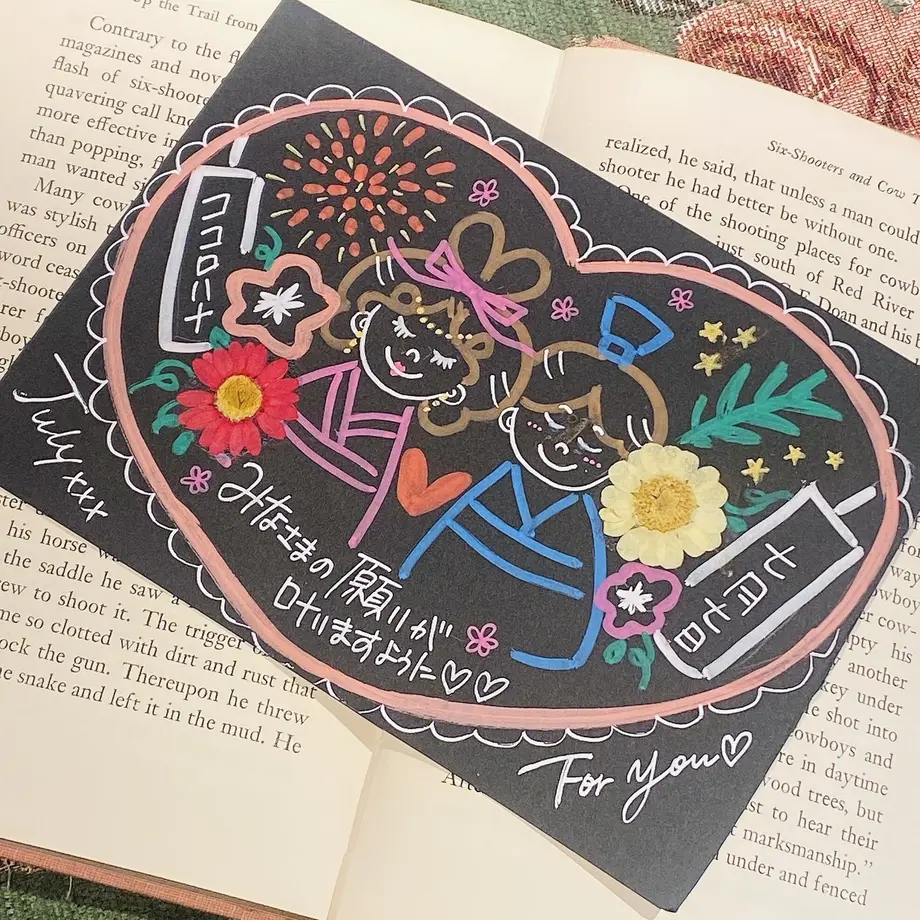 Up the Trail from
Contrary to the
magazines and
flash of
quavering call
more effective in
than popping,
man wanted
Many
was stylish
officers on
word
Six-Shooters and Cow
realized, he said, that unless a man could
shooter he had better be without one.
One of the shooting places for
just south of Red River
Doan and his
ココロハナ
七月七日
みなさまの願いが
叶いますように♡♡
July xxx
For you♡
his horse
the saddle he saw a
to shoot it. The trigger
so clotted with dirt and rust that
the gun. Thereupon he threw
snake and left it in the mud. He
way
his
another
under
shot into
cowboys and
in daytime
wood trees, but
to hear their
marksmanship.”
under and fenced